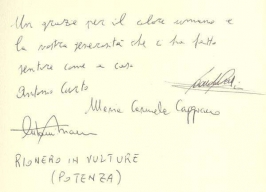 Un grazie per il calore umano e
la vostra generosità che ci ha fatto
sentire come a casa
Antonio
Maria Carmela
RIONERO IN VULTURE
(POTENZA)